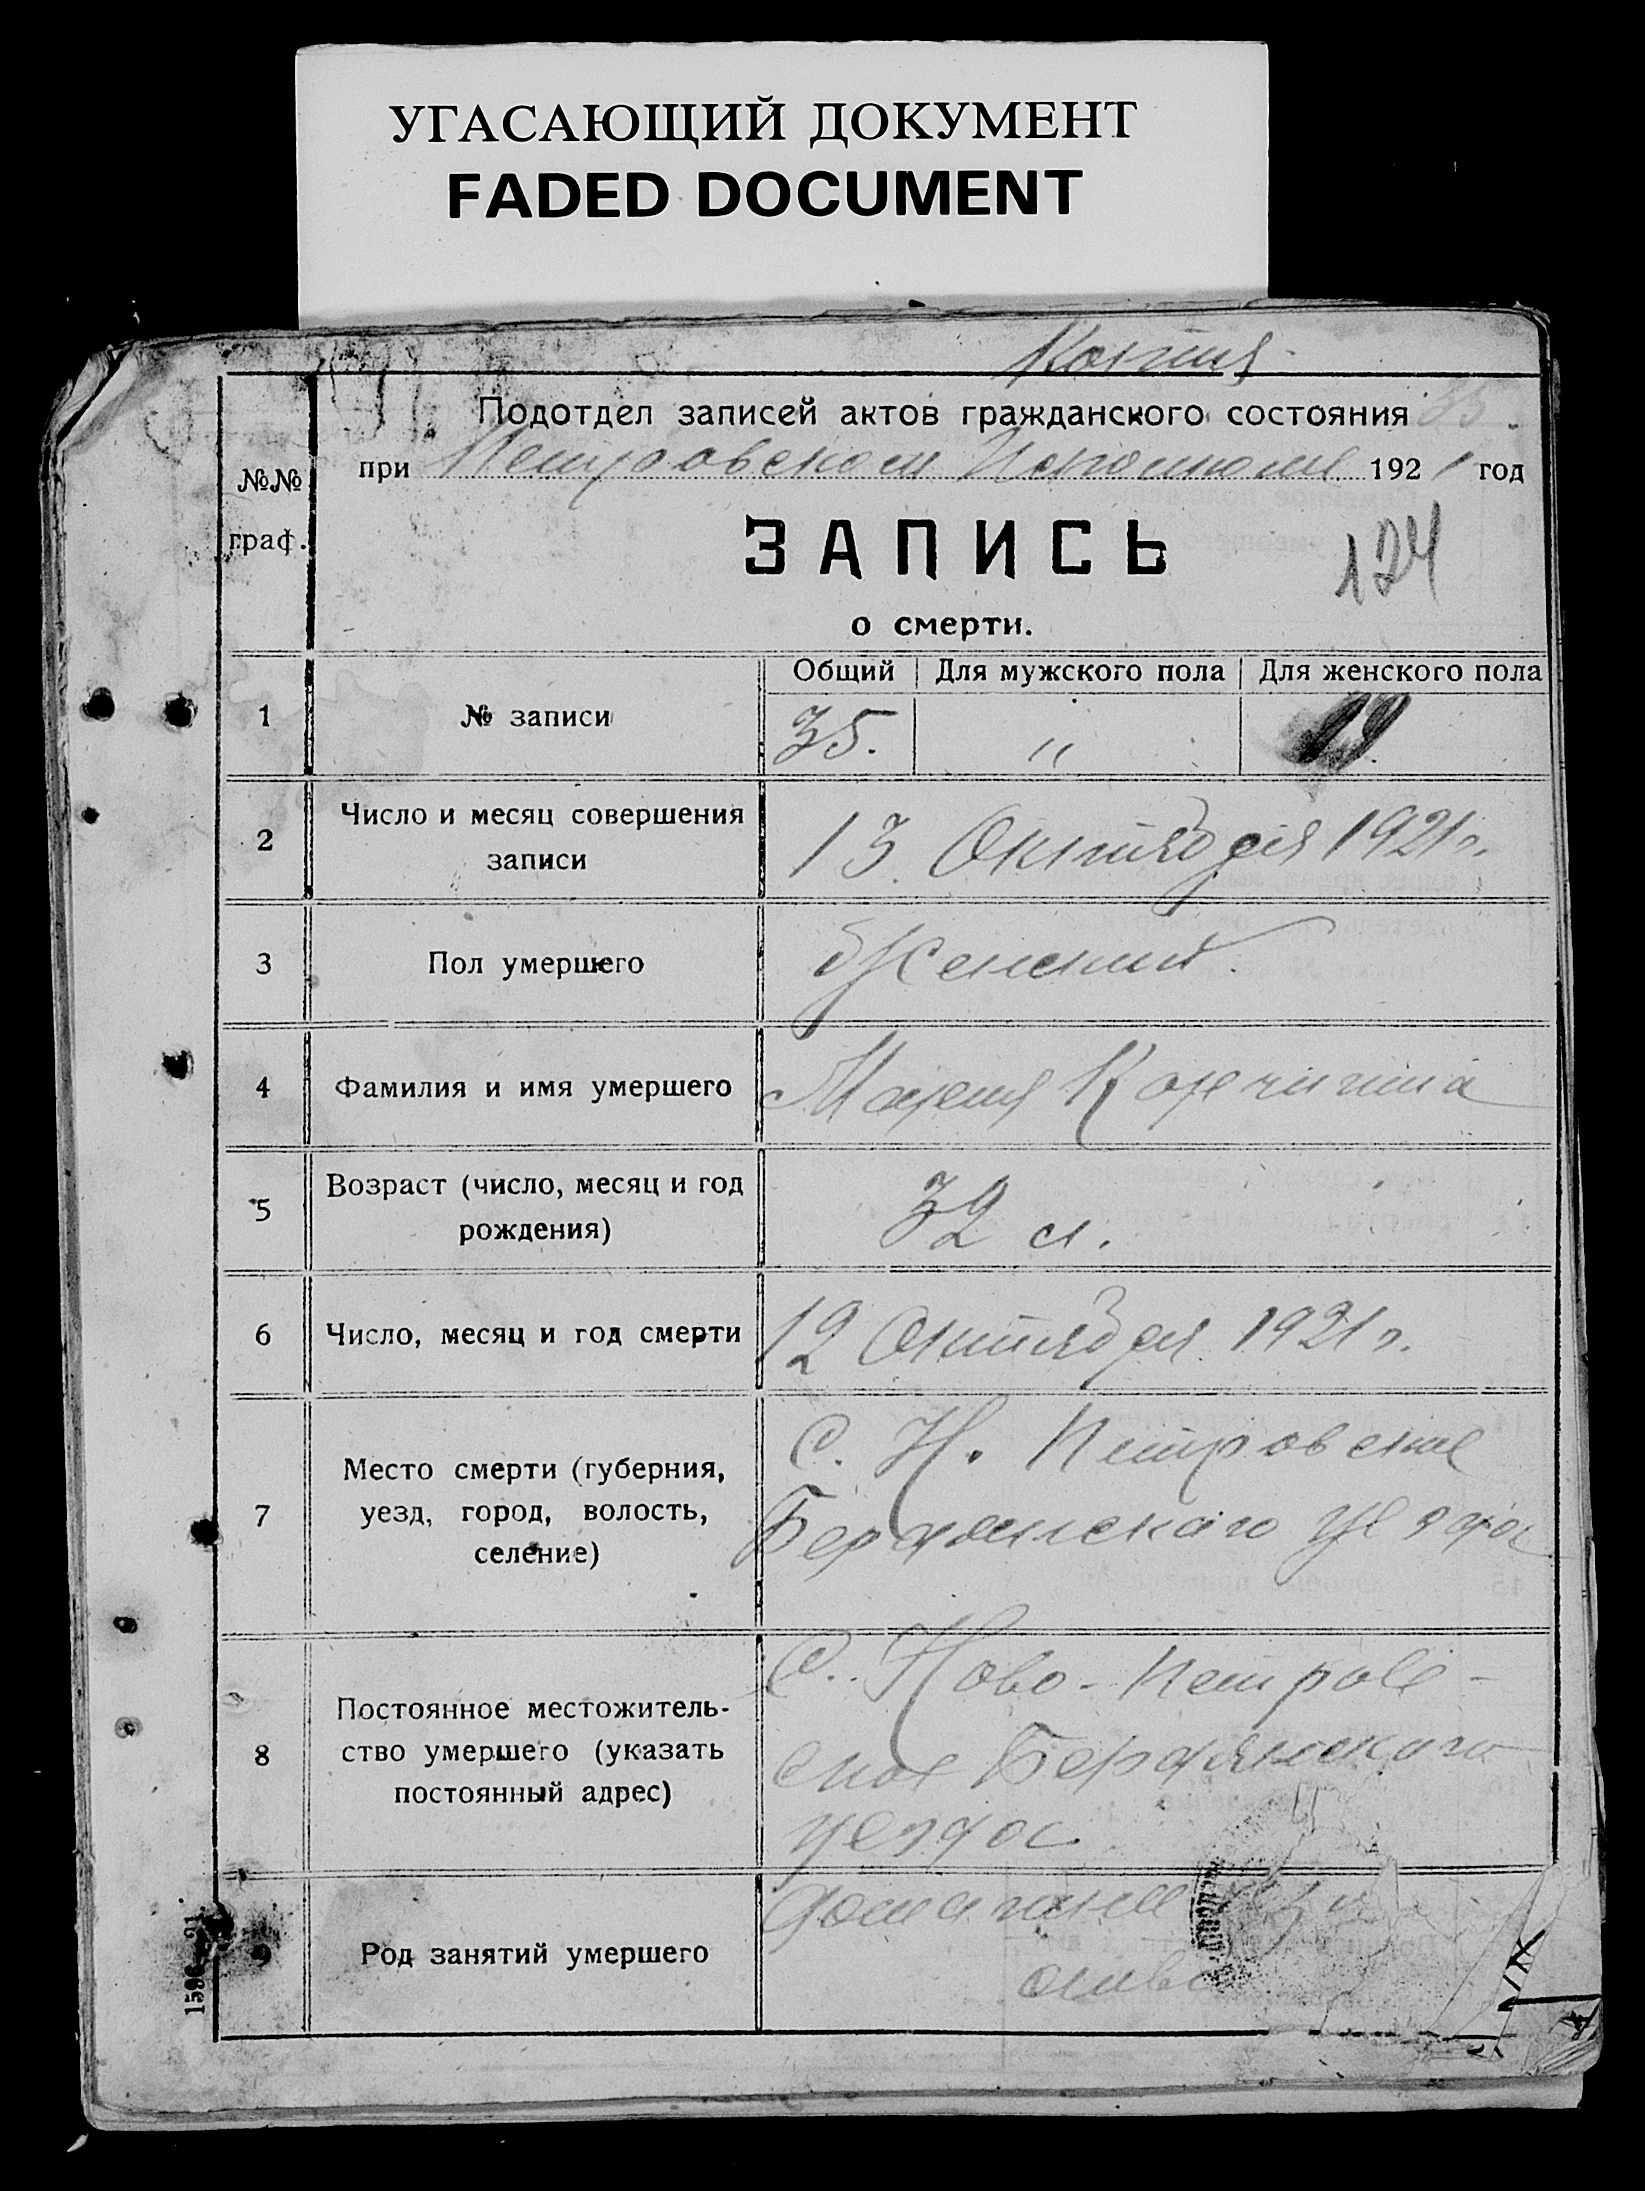 УГАСАЮЩИЙ ДОКУМЕНТ
FADED DOCUMENT
Копия
Подотдел записей актов гражданского состояния 35.
при Петровском Исполкоме 1921 год
№№ граф.
ЗАПИСЬ
124
о смерти.
Общий Для мужского пола Для женского пола
1 № записи 35. „ 19.
2 Число и месяц совершения записи 13 Октября 1921 г.
3 Пол умершего Женский.
4 Фамилия и имя умершего Мария
5 Возраст (число, месяц и год рождения) 32 л.
6 Число, месяц и год смерти 12 Октября 1921 г.
7 Место смерти (губерния, уезд, город, волость, селение) С. Н. Петровское
Бердянского уезда
8 Постоянное местожительство умершего (указать постоянный адрес) С. Ново-Петров-
ское Бердянского
уезда
9 Род занятий умершего
1596—21